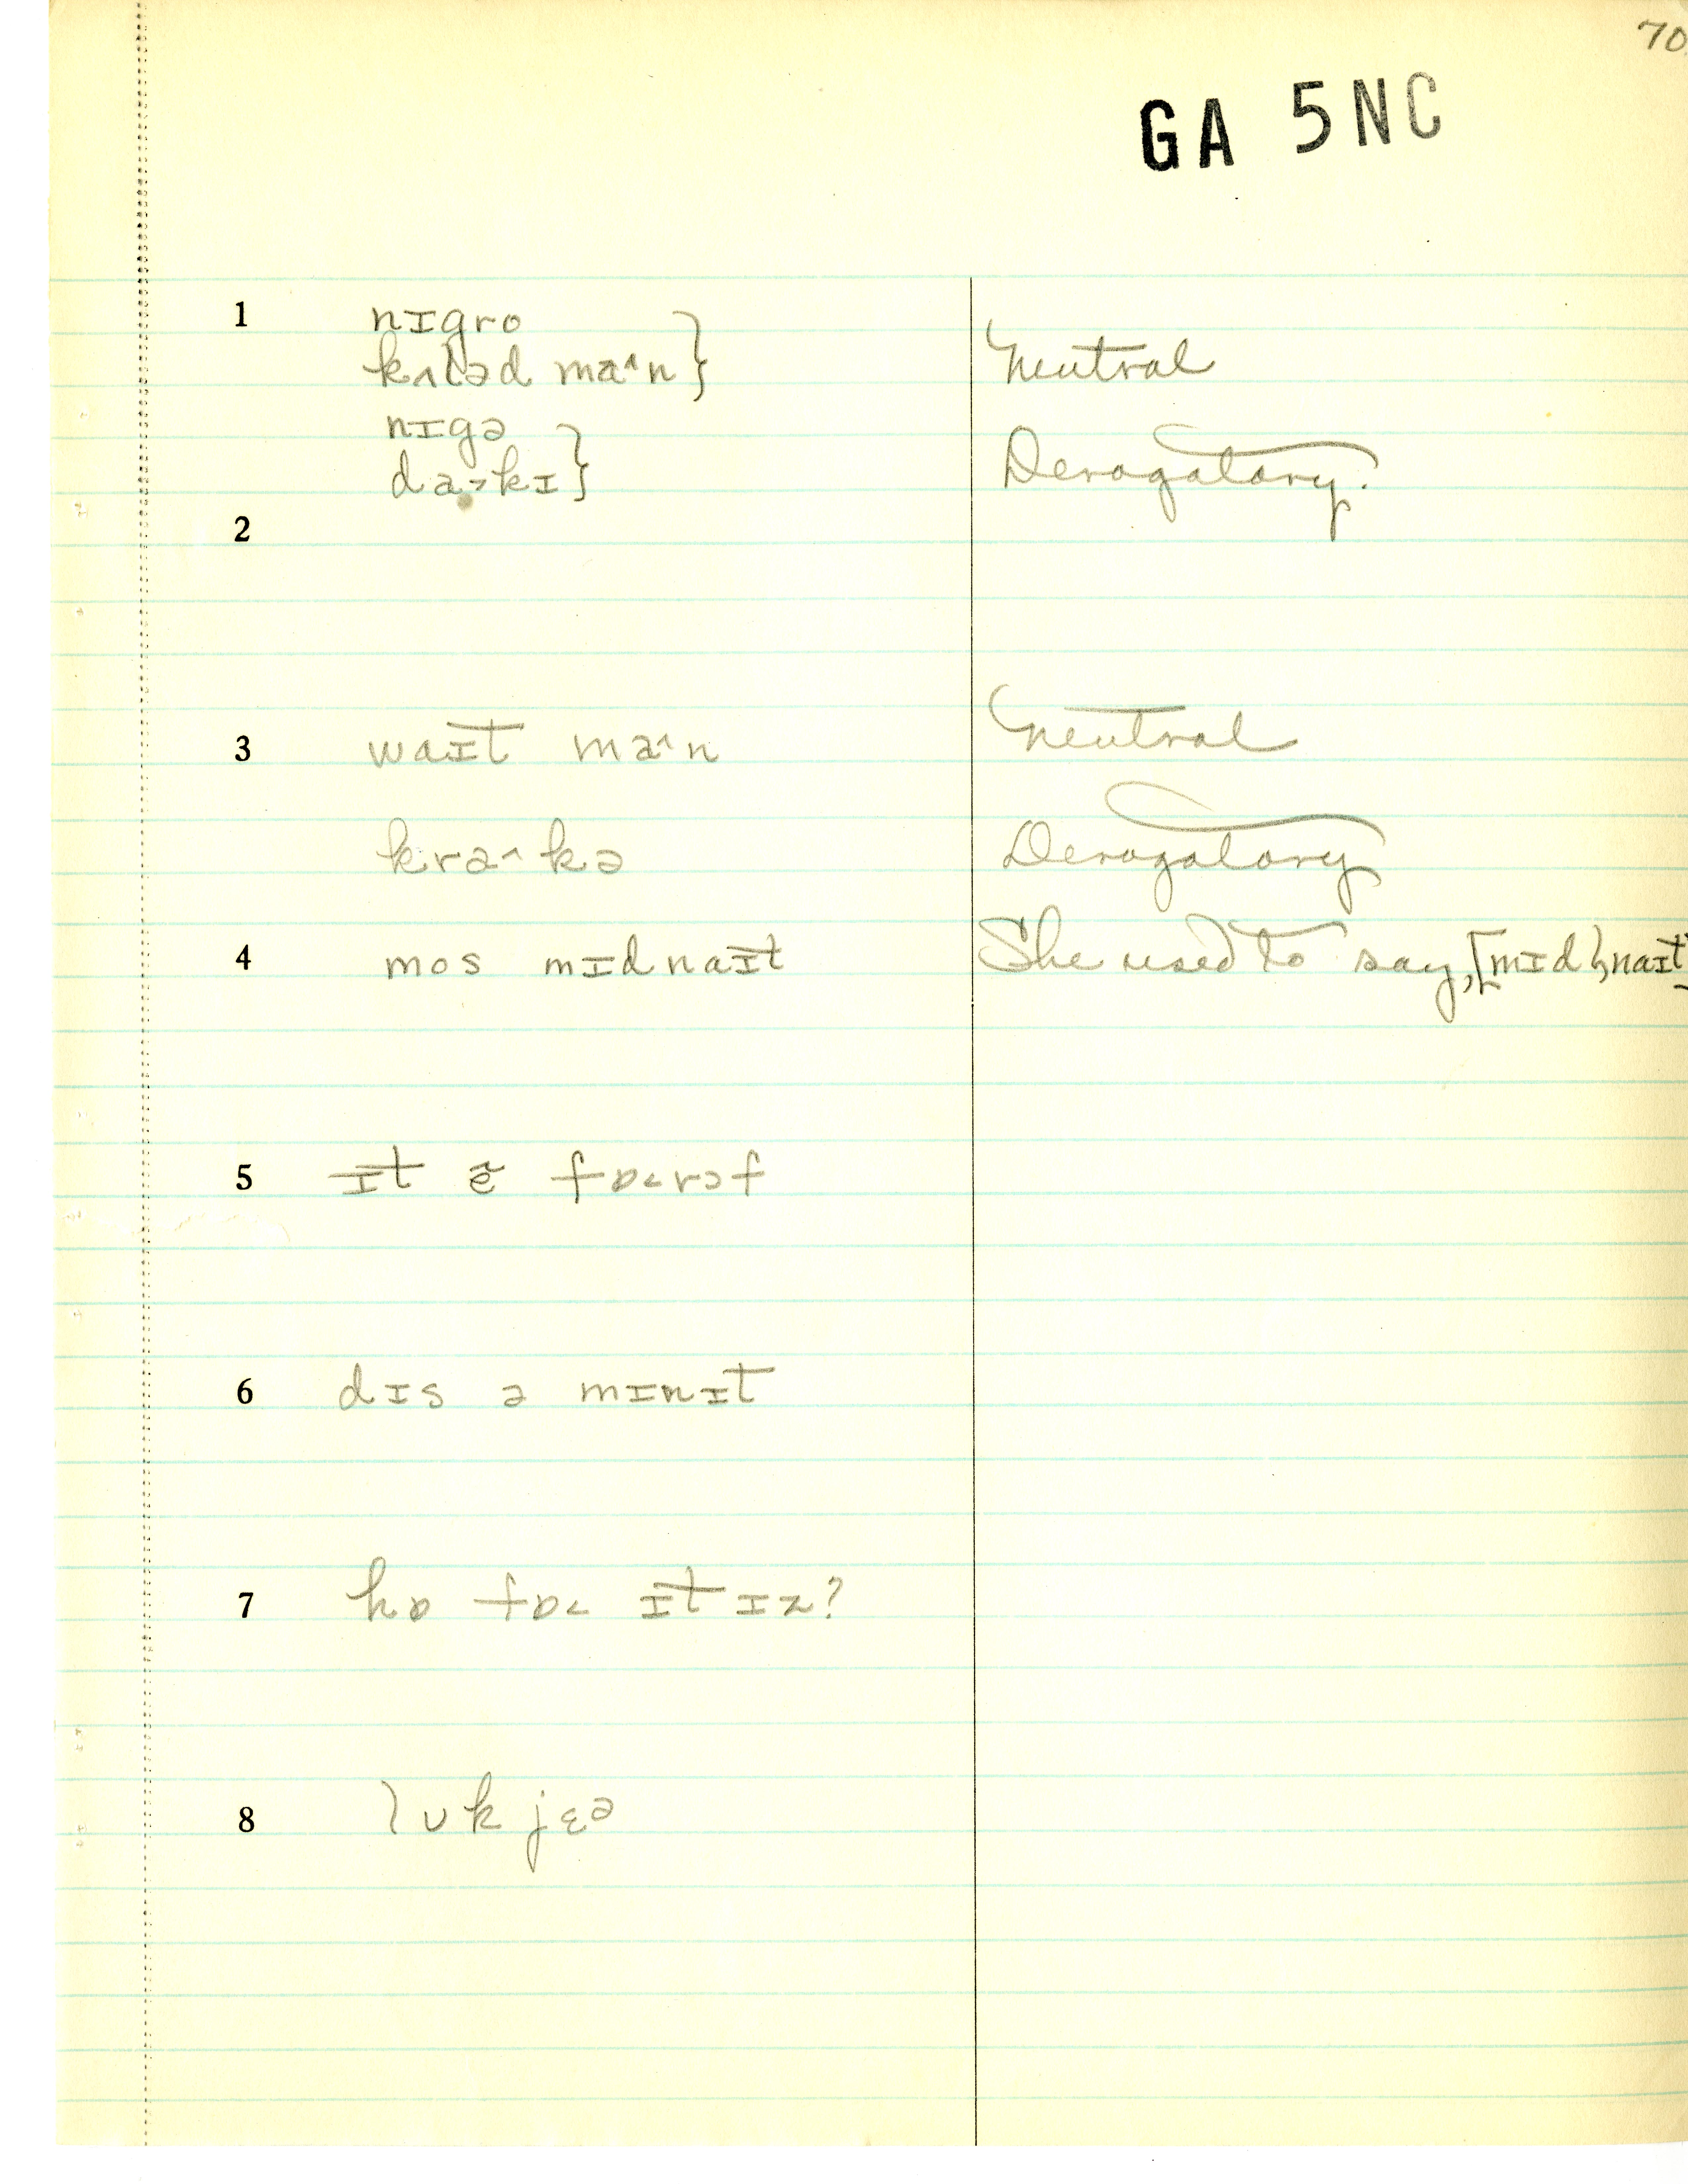 70
GA 5NC
1 nɪgro
kʌləd ma^n } Neutral
nɪgə
da>kɪ } Derogatory.
2
3 waɪt ma^n Neutral
kra^kə Derogatory
4 mos mɪdnaɪt She used to say, [mɪdl̩naɪt]
5 ɪt ɛ̃ fɒ<rəf
6 dɪs ə mɪnɪt
7 hɒ fɒ< ɪt ɪz?
8 lʊk jɛə